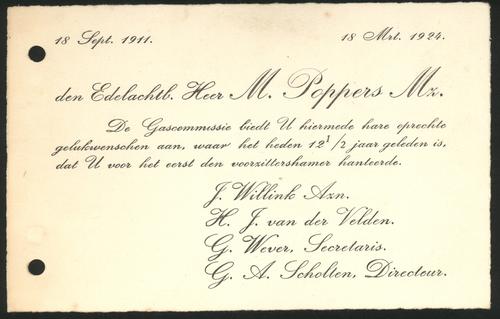 18 Sept. 1911.
18 Mrt. 1924.
den Edelachtb. Heer M. Poppers Mz.
De Gascommissie biedt U hiermede hare oprechte
gelukwenschen aan, waar het heden 12 1/2 jaar geleden is,
dat U voor het eerst den voorzittershamer hanteerde.
J. Willink Azn.
H. J. van der Velden.
G. Wever, Secretaris.
G. A. Scholten, Directeur.